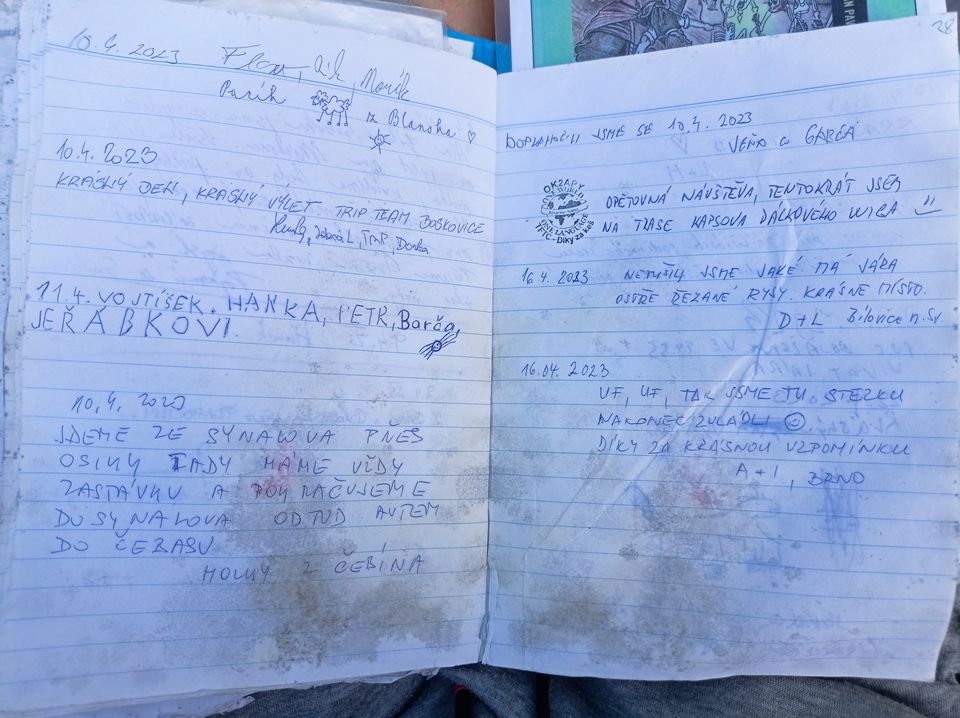 10.4. 2023
z Blanska ♡
10.4. 2023
KRÁSNÝ DEN, KRÁSNÝ VÝLET. TRIP TEAM BOSKOVICE
Donka
11.4. VOJTÍŠEK. HANKA, PETR, Barča,
JEŘÁBKOVI.
10.4. 2023
JDEME ZE SYNALOVA PŘES
OSIKY TADY MÁME VŽDY
ZASTÁVKU A POKRAČUJEME
DO SYNALOVA ODTUD AUTEM
DO
HOLKY Z ČEBÍNA
28
JSME SE 10.4. 2023
OKZAPY
ONE WORLD
ONE LANGUAGE
TFTC - Díky za keš
OPĚTOVNÁ NÁVŠTĚVA, TENTOKRÁT JSEM
NA TRASE KAPSOVA DÁLKOVÉHO
16.4. 2023 NETUŠILY JSME JAKÉ MÁ JÁRA
OSTŘE ŘEZANÉ RYSY. KRÁSNÉ MÍSTO.
D+L Bílovice n. Sv
16.04. 2023
UF, UF, TAK JSME TU STEZKU
NAKONEC ZVLÁDLI ☺
DÍKY ZA KRÁSNOU VZPOMÍNKU
A+I, BRNO